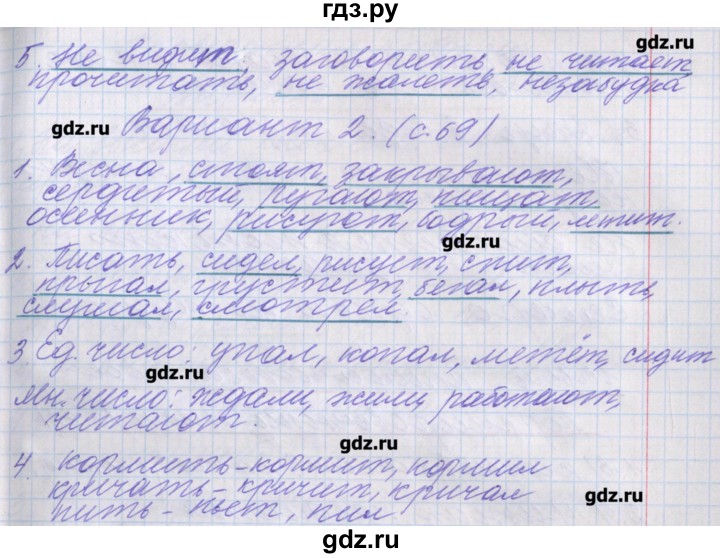 гдз.ру
5. Не видит, заговорить, не читает,
gdz.ru
прочитать, не жалеть, незабудка
gdz.ru
Вариант 2. (с. 69)
1. Весна, стоят, закрывают,
gdz.ru
сердитый, ругают, пищат,
осенник, рисуют, бодрый, летит.
gdz.ru
2. Писать, сидел, рисует, спит,
прыгал, грустит, бегал, плыть,
gdz.ru
слушал, смотрел.
3 Ед. число: упал, копал, метёт, сидит
gdz.ru
Мн. число: ждали, жили, работают,
читают.
gdz.ru
4. кормить – кормит, кормил
кричать – кричит, кричал
gdz.ru
пить – пьет, пил
gdz.ru